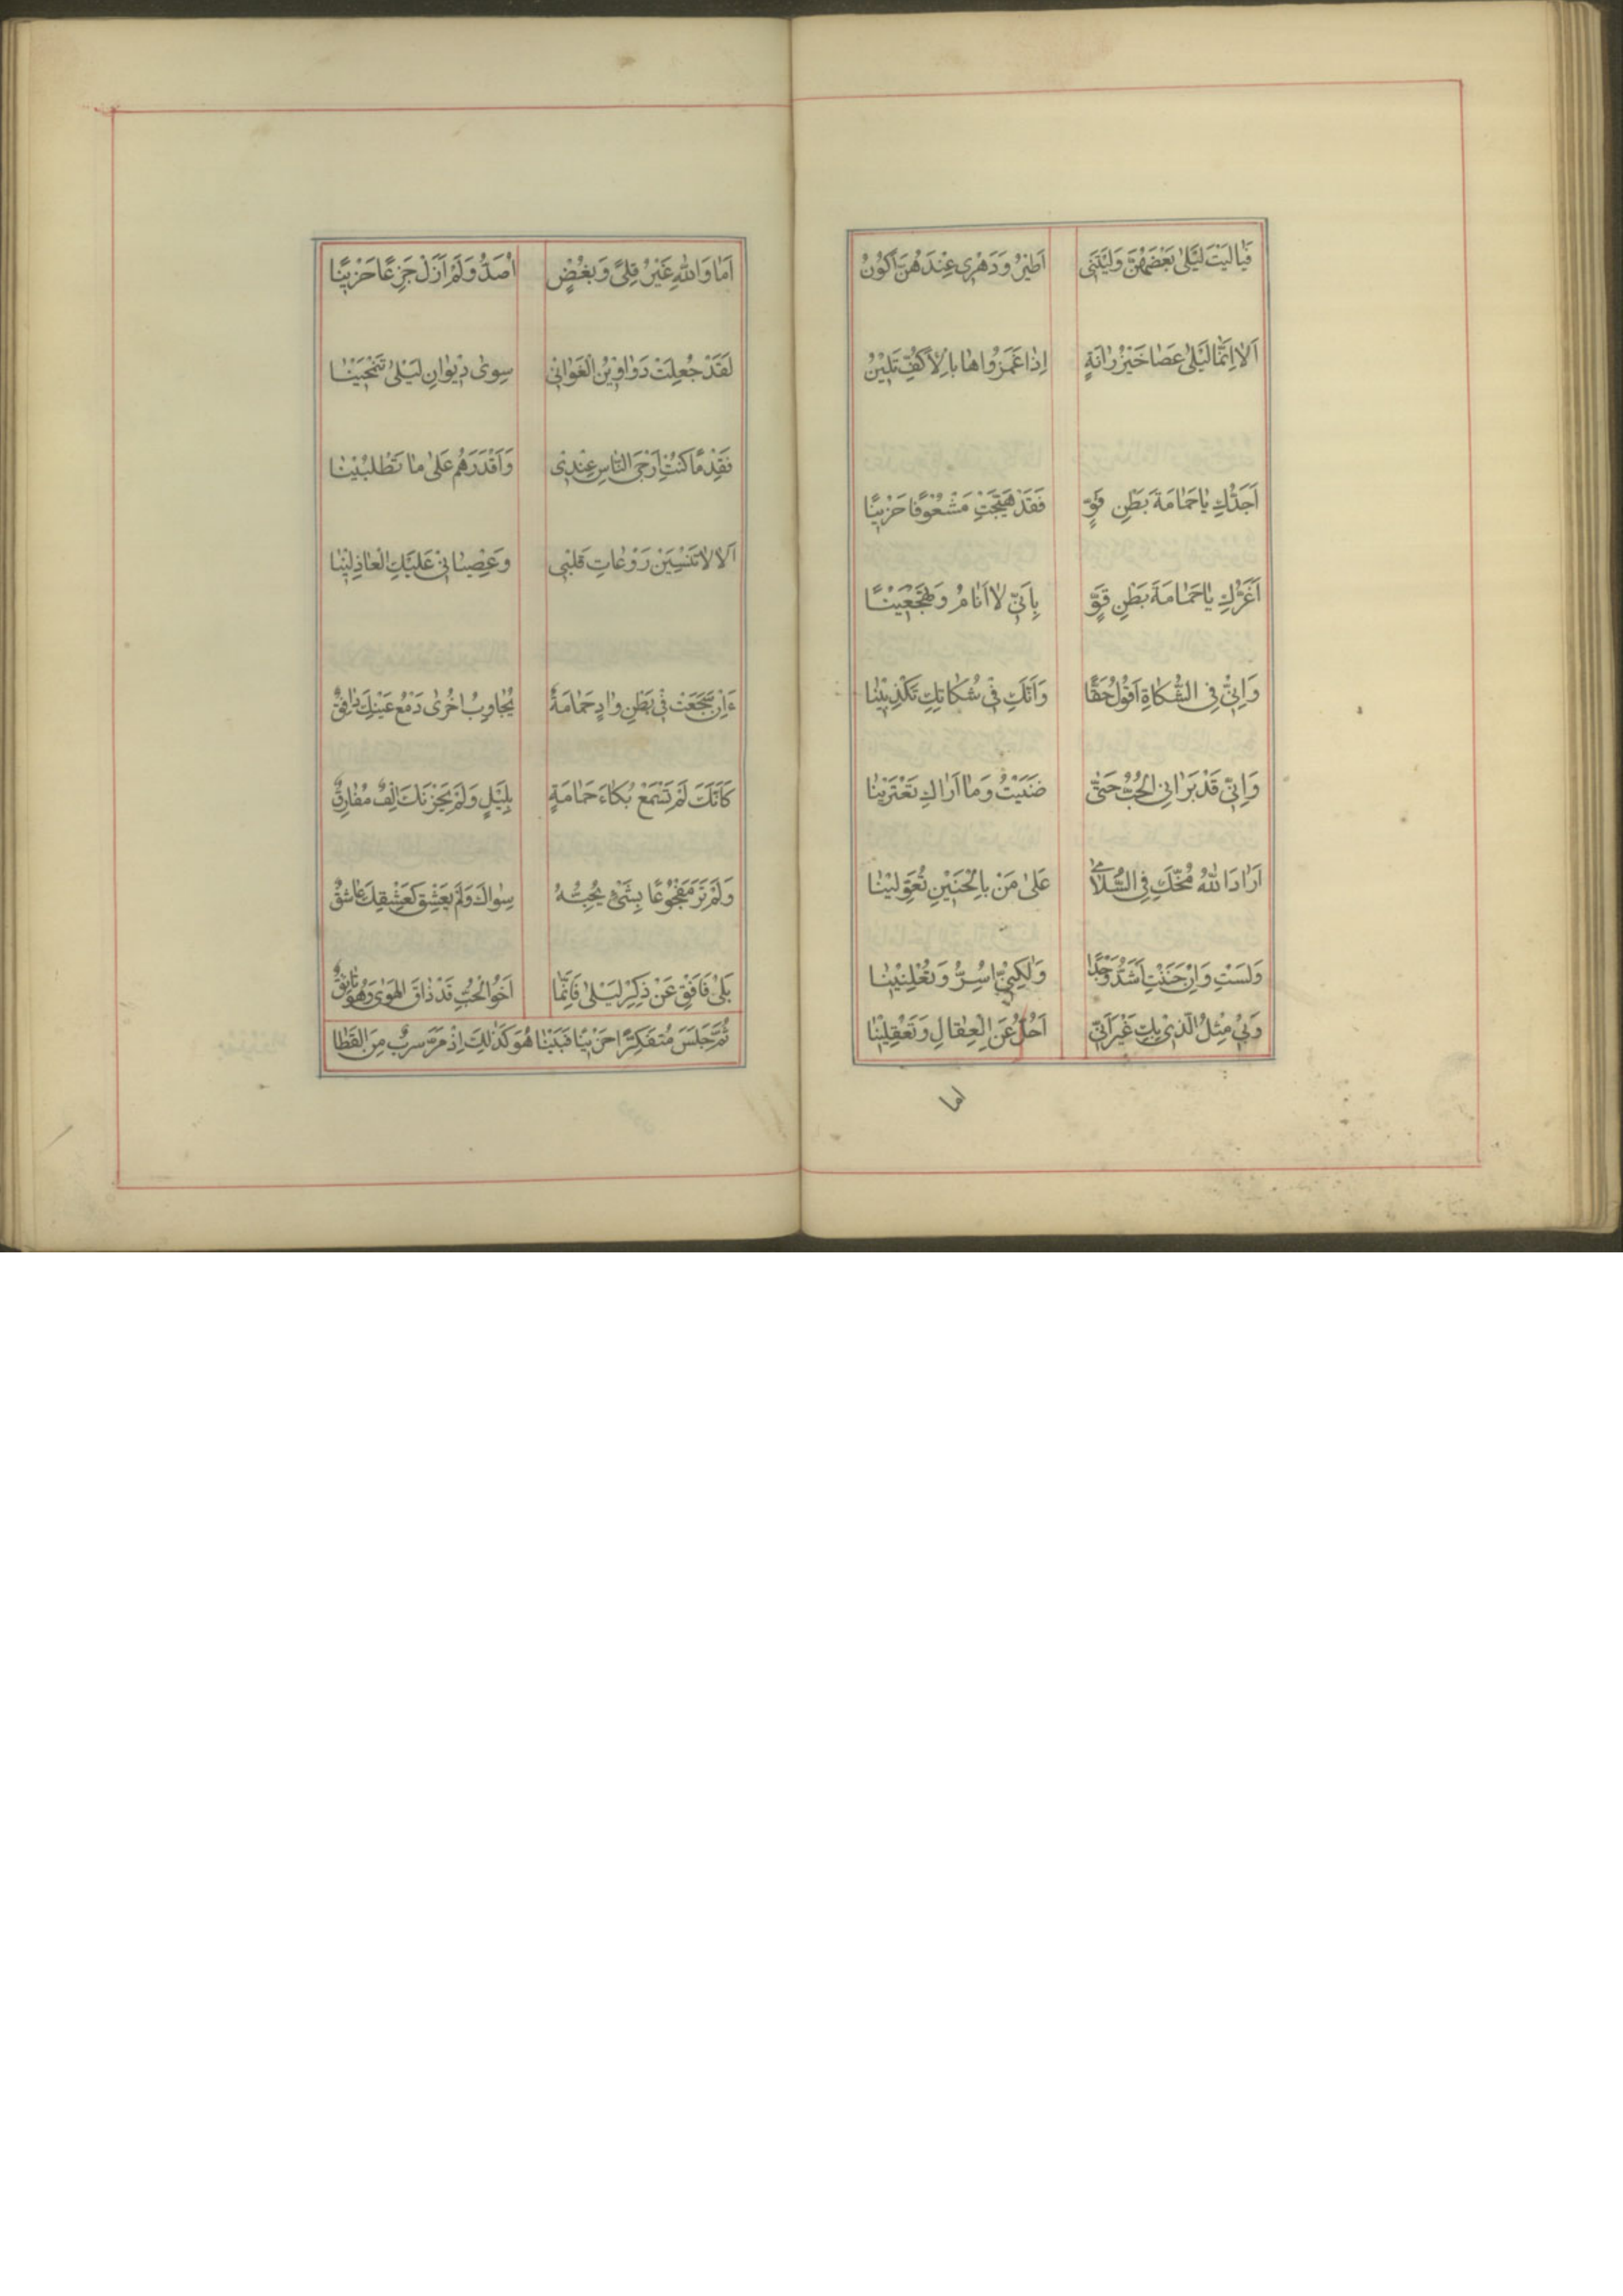 فَيٰالَيْتَ لَيْلٰى بَعْضَهُنَّ وَلَيْتَنى اَطيٖرُ وَدَهْرى عِنْدَهُنَّ اَكُونُ
اَلٰا اِنَّمٰا لَيْلٰى عَصٰا خَيْزُرٰانَةٍ اِذٰا غَمَزُواهٰا بِالْاَكُفِّ تَليٖنُ
اَجَدُّكِ يٰاحَمٰامَةَ بَطْنِ قَوٍّ فَقَدْ هَيَّجْتِ مَشْعُوفًا حَزيٖنًا
اَغَرَّكِ يٰاحَمٰامَةَ بَطْنِ قَوٍّ بِاَنّيٖ لٰا اَنٰامُ وَتَهْجَعيٖنٰا
وَاِنّيٖ فِى الشَّكٰاةِ اَقُولُ حَقًّا وَاَنَّكِ فيٖ شَكٰاتِكِ تَكْذِبيٖنٰا
وَاِنّيٖ قَدْ بَرٰانِى الْحُبُّ حَتّٰى ضَنَيْتُ وَمٰا اَرٰاكِ تَغْتَريٖنٰا
اَرٰادَ اللهُ مُخَّكِ فِى السُّلٰامٰى عَلٰى مَنْ بِالْحَنيٖنِ تُعَوِّليٖنٰا
وَلَسْتِ وَاِنْ حَنَنْتِ اَشَدُّ وَجْدًا وَلٰكِنّيٖ اُسِرُّ وَتُعْلِنيٖنٰا
وَبيٖ مِثْلُ الَّذيٖ بِكِ غَيْرَ اَنّيٖ اَحُلُّ عَنِ الْعِقٰالِ وَتُعْقَليٖنٰا
اما
اَمٰا وَاللهِ غَيْرُ قِلىً وَبَغُضٍ اَصَدُّ وَلَمْ اَزَلْ جَزِعًا حَزيٖنًا
لَقَدْ جُعِلَتْ دَوٰاويٖنُ الْغَوٰانيٖ سِوٰى ديٖوٰانِ لَيْلٰى تَمَّحيٖنٰا
فَقِدْمًا كُنْتِ اَرْجَى النّٰاسِ عِنْديٖ وَاَقْدَرَهُمْ عَلٰى مٰا تَطْلُبيٖنٰا
اَلٰا لٰا تَنْسَيَنْ رَوْعٰاتِ قَلْبيٖ وَعِصْيٰانيٖ عَلَيْكِ الْعٰاذِليٖنٰا
ءَاِنْ سَجَعَتْ فيٖ بَطْنِ وٰادٍ حَمٰامَةٌ يُجٰاوِبُ اُخْرٰى دَمْعُ عَيْنِكَ دٰافِقٌ
كَاَنَّكَ لَمْ تَسْمَعْ بُكٰاءَ حَمٰامَةٍ بِلَيْلٍ وَلَمْ يَحْزُنْكَ اِلْفٌ مُفٰارِقٌ
وَلَمْ تَرَ مَفْجُوعًا بِشَىْءٍ يُحِبُّهُ سِوٰاكَ وَلَمْ يَعْشَقْ كَعَشْقِكَ عٰاشِقٌ
بَلٰى فَاَفِقْ عَنْ ذِكْرِ لَيْلٰى فَاِنَّمٰا اَخُوالْحُبِّ قَدْ ذٰاقَ الْهَوٰى وَهُوَ
ثُمَّ جَلَسَ مُتَفَكِّرًا حَزيٖنًا فَبَيْنٰا هُوَ كَذٰلِكَ اِذْ مَرَّ سِرْبٌ مِنَ الْقَطٰا